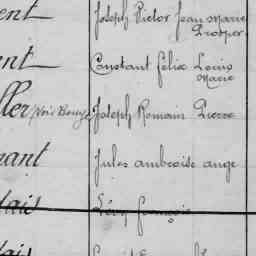 ent Joseph Victor Jean Marie
Prosper
ent Constant Félix Louis
Marie
ller (Voir Bouye Joseph Romain Pierre
nant Jules ambroise ange
lais François
lais